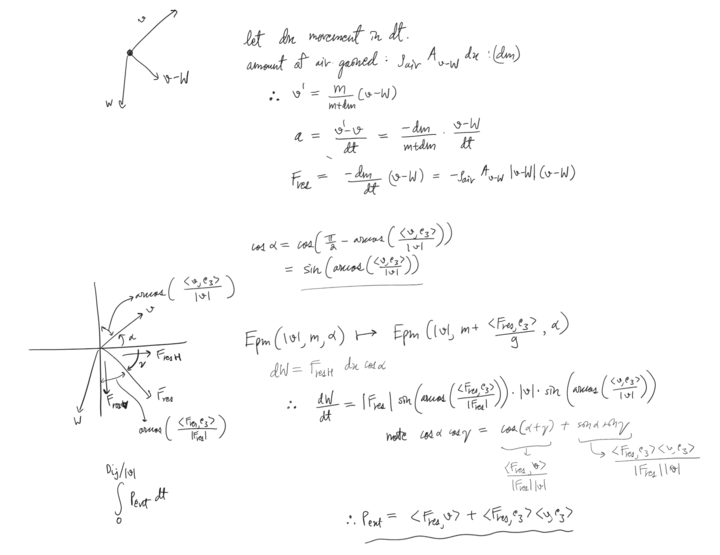 v
v-W
W
let dx movement in dt.
amount of air gained : ρair A_{v-W} dx : (dm)
∴ v' = m/(m+dm) (v-W)
a = (v'-v)/dt = -dm/(m+dm) · (v-W)/dt
F_res = -dm/dt (v-W) = -ρair A_{v-W} |v-W| (v-W)
cos α = cos(π/2 - arccos(<v,e_3>/|v|))
= sin(arccos(<v,e_3>/|v|))
arccos(<v,e_3>/|v|)
v
α
F_resH
γ
F_res
F_resV
W
arccos(<F_res,e_3>/|F_res|)
Epm(|v|, m, α) ↦ Epm(|v|, m + <F_res,e_3>/g, α)
dW = F_resH dx cos α
∴ dW/dt = |F_res| sin(arccos(<F_res,e_3>/|F_res|)) · |v| · sin(arccos(<v,e_3>/|v|))
note cos α cos γ = cos(α+γ) + sin α sin γ
<F_res,v>/|F_res||v|
<F_res,e_3><v,e_3>/|F_res||v|
∫_0^{Dij/|v|} P_ext dt
∴ P_ext = <F_res,v> + <F_res,e_3><v,e_3>